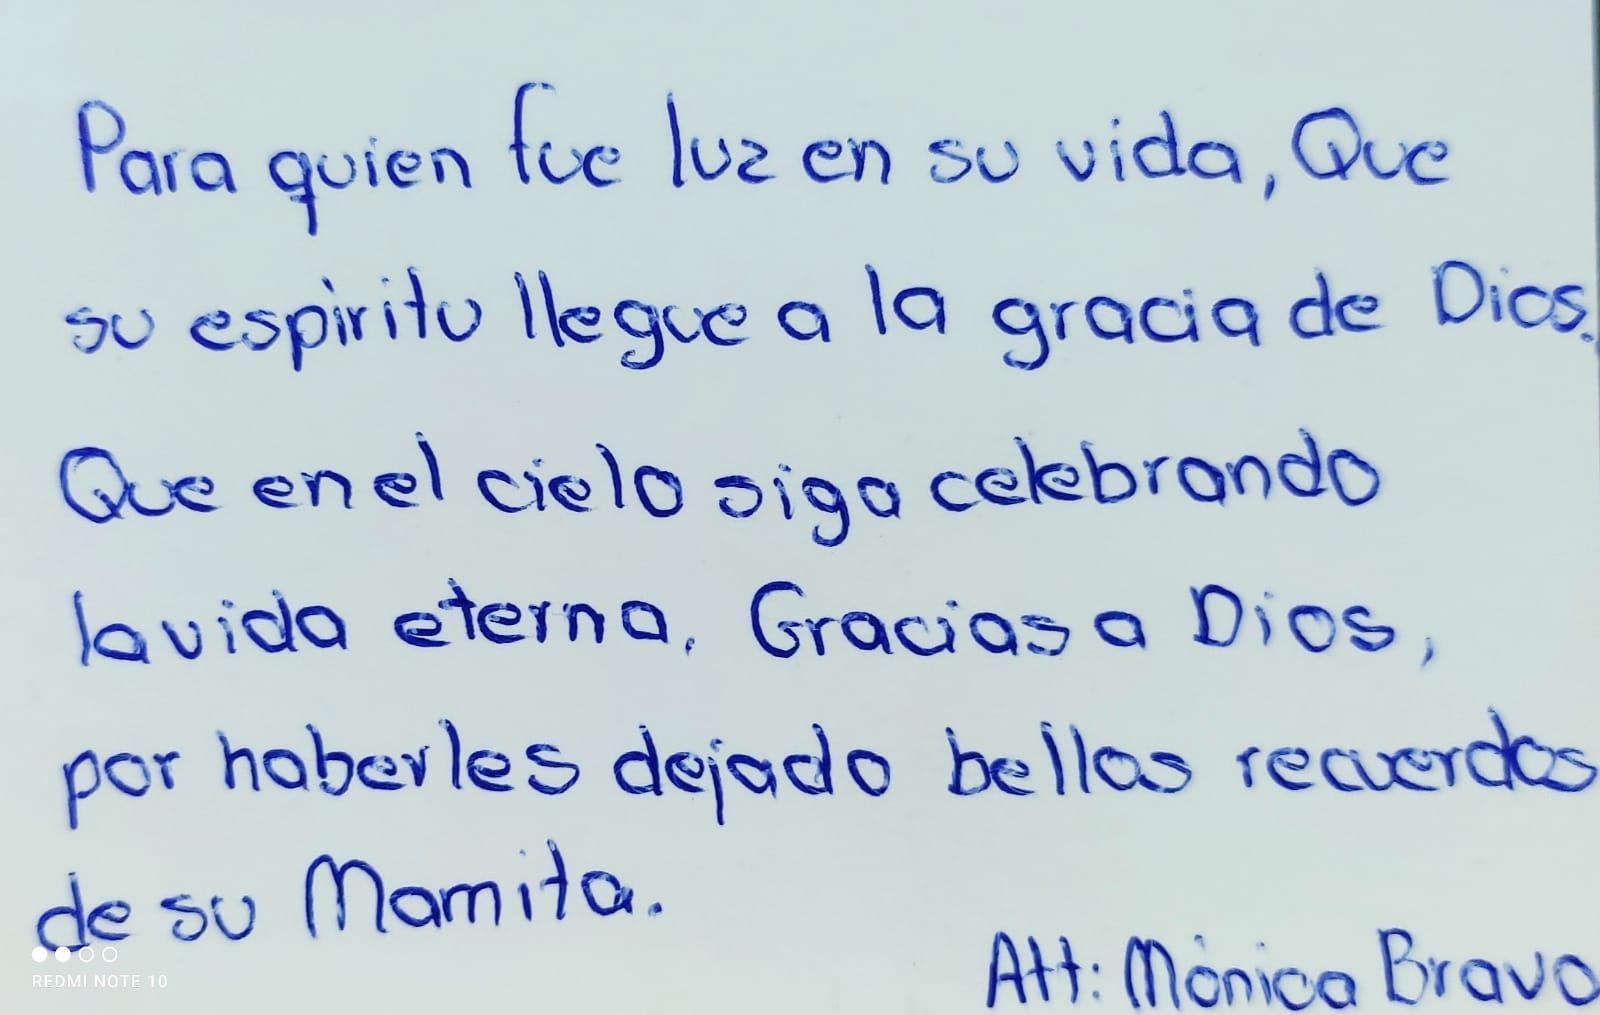 Para quien fue luz en su vida, Que
su espíritu llegue a la gracia de Dios.
Que en el cielo siga celebrando
la vida eterna. Gracias a Dios,
por haberles dejado bellos recuerdos
de su Mamita.
Att: Mónica Bravo
REDMI NOTE 10